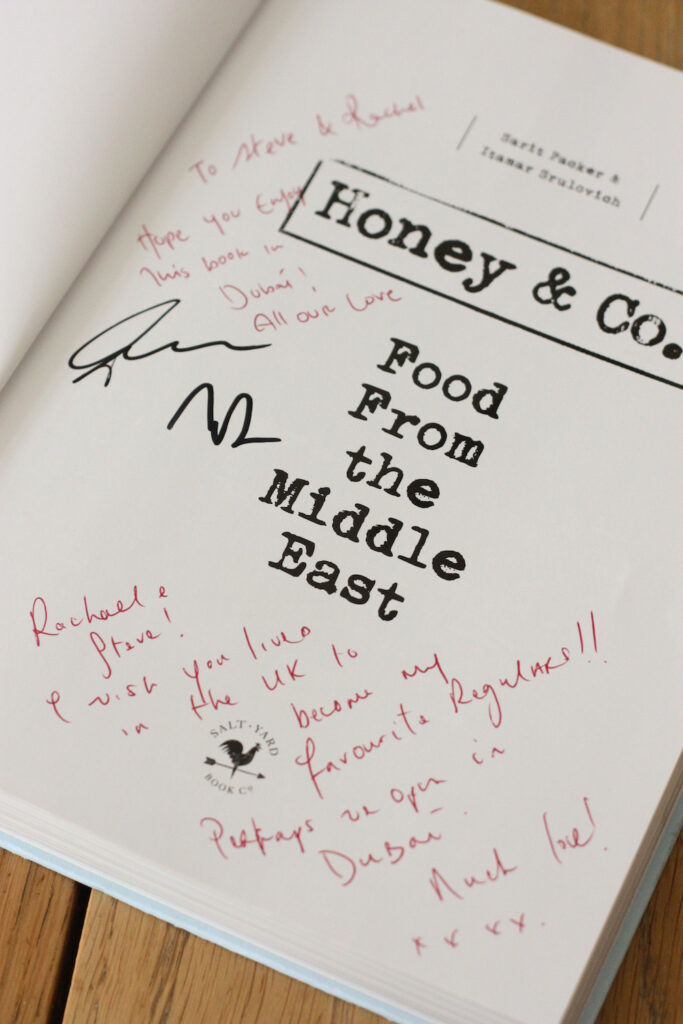 To Steve & Rachel
Sarit Packer &
Itamar Srulovich
Hope you Enjoy
This book in
Dubai!
All our Love
Honey & Co.
Food
From
the
Middle
East
Rachael &
Steve!
I wish you lived
in the UK to
become my
favourite Regulars!!
SALT-YARD
BOOK Co
Perhaps we open in
Dubai.
Much love!
xxxx.